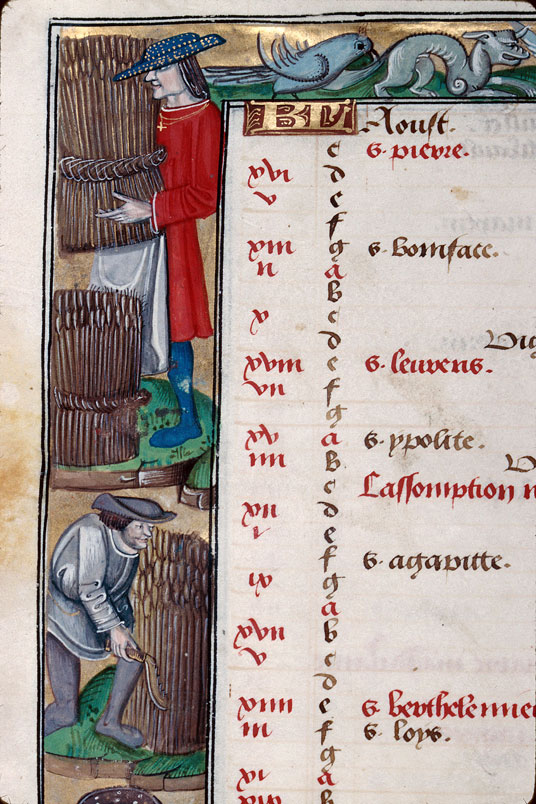 KL Aoust.
c s. pierre.
xvi d
v e
f
xiii g s. boniface.
ii a
b
x c
d Vig
xviii e s. leurens.
vii f
g
xv a s. ypolite.
iiii b V
c Lassomption n
xii d
i e
f s. agapitte.
ix g
a
xvii b
v c
d
xiiii e s. berthelemieu
iii f s. loys.
g
xi a
b